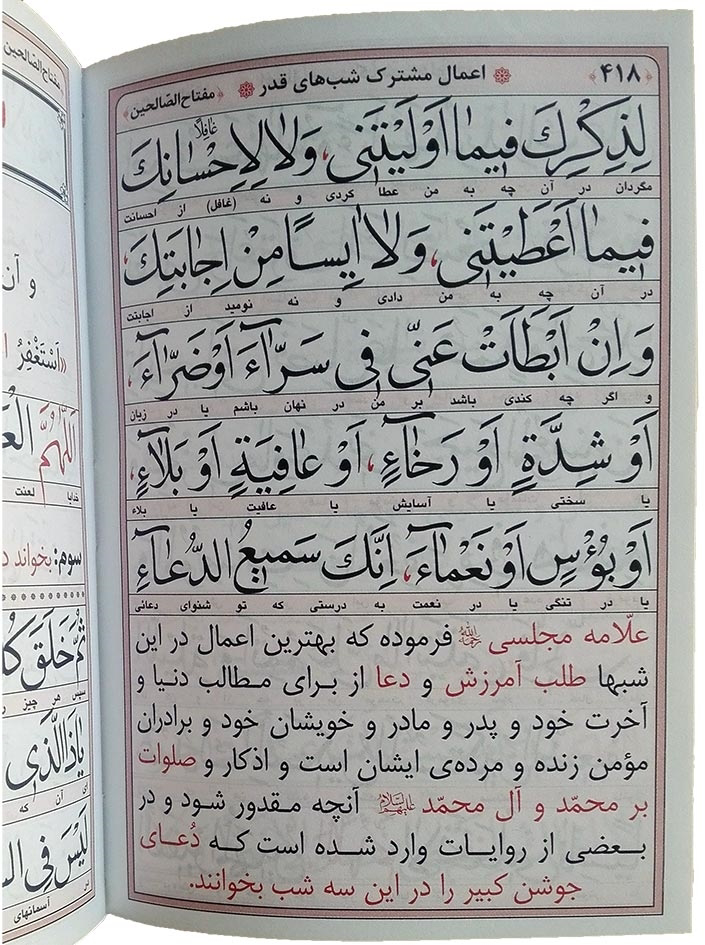 ﴿۴۱۸﴾
اعمال مشترک شب‌های قدر
﴿مفتاح الصّالحین﴾
لِذِکْرِكَ فیمٰا اَوْلَیْتَنی، وَلٰا لِاِحْسٰانِكَ
غٰافِلًا
مگردان در آن چه به من عطا کردی و نه (غافل) از احسانت
فیمٰا اَعْطَیْتَنی، وَلٰا اٰیِسًا مِنْ اِجٰابَتِكَ،
در آن چه به من دادی و نه نومید از اجابتت
وَاِنْ اَبْطَاَتْ عَنّی فی سَرّٰآءَ اَوْضَرّٰآءَ،
و اگر چه کندی باشد بر من در نهان باشم یا در زیان
اَوْ شِدَّةٍ اَوْ رَخٰآءٍ، اَوْ عٰافِیَةٍ اَوْ بَلٰآءٍ،
یا سختی یا آسایش یا عافیت یا بلاء
اَوْ بُؤْسٍ اَوْ نَعْمٰآءَ، اِنَّكَ سَمیعُ الدُّعٰآءِ
یا در تنگی یا در نعمت به درستی که تو شنوای دعائی
علّامه مجلسی فرموده که بهترین اعمال در این
شبها طلب آمرزش و دعا از برای مطالب دنیا و
آخرت خود و پدر و مادر و خویشان خود و برادران
مؤمن زنده و مرده‌ی ایشان است و اذکار و صلوات
بر محمّد و آل محمّد علیهم‌السلام آنچه مقدور شود و در
بعضی از روایات وارد شده است که دُعـای
جوشن کبیر را در این سه شب بخوانند.
مفتاح الصّالحین
و آن
«اَسْتَغْفِرُ
اَللّٰهُمَّ
خدایا لعنت
سوم: بخواند
ثُمَّ خَلَقَ
سپس هر چیز
یٰاذَاالَّذی
ای آن که
لَیْسَ فِی
آسمانهای